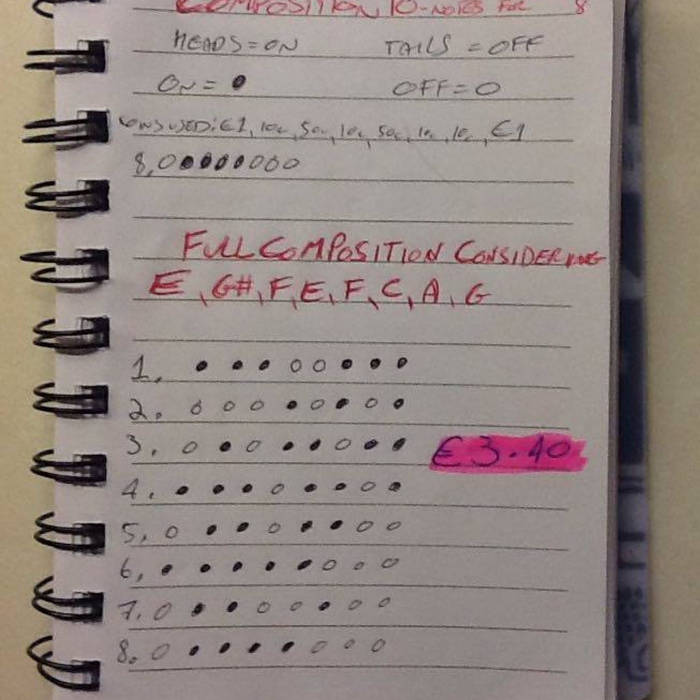 COMPOSITION 10-NOTES FOR 8
HEADS = ON TAILS = OFF
ON = ● OFF = O
COINS USED: €1, 10c, 50c, 10c, 50c, 10c, 10c, €1
8, ○●●●●○○○
FULL COMPOSITION CONSIDERING
E, G#, F, E, F, C, A, G
1. ● ● ● ○ ○ ● ● ●
2. ○ ○ ○ ● ○ ● ○ ●
3. ○ ● ○ ● ● ○ ● ● €3.40
4. ● ● ● ○ ● ● ○ ●
5, ○ ● ● ○ ● ● ○ ○
6, ● ● ● ● ● ○ ○ ○
7. ○ ● ● ○ ○ ● ○ ○
8. ○ ● ● ● ● ○ ○ ○